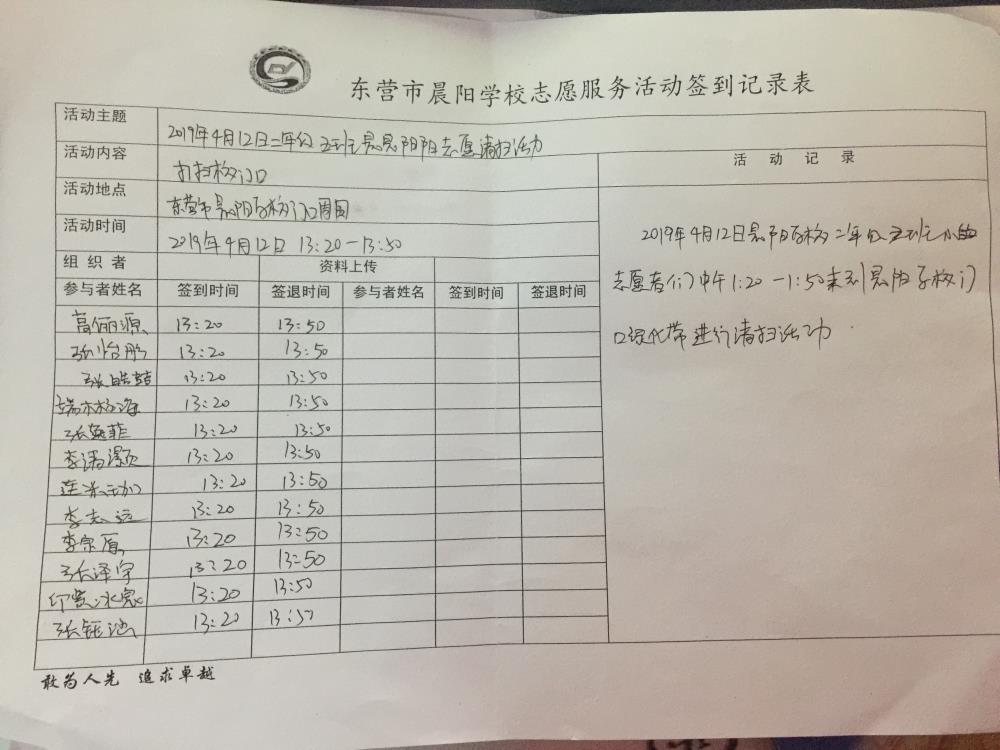 东营市晨阳学校志愿服务活动签到记录表
活动主题 2019年4月12日二年级五班晨晨阳阳志愿清扫活动
活动内容 打扫校门口 活动记录
活动地点 东营市晨阳学校门口周围
活动时间 2019年4月12日 13:20—13:50
2019年4月12日晨阳学校二年级五班小
志愿者们中午1:20—1:50来到晨阳学校门
口绿化带进行清扫活动.
组织者 资料上传
参与者姓名 签到时间 签退时间 参与者姓名 签到时间 签退时间
高俪源 13:20 13:50
张怡彤 13:20 13:50
张皓喆 13:20 13:50
13:20 13:50
张燕菲 13:20 13:50
李潇灏 13:20 13:50
13:20 13:50
李志远 13:20 13:50
李宗原 13:20 13:50
张泽宇 13:20 13:50
13:20 13:50
张钰 13:20 13:50
敢为人先 追求卓越